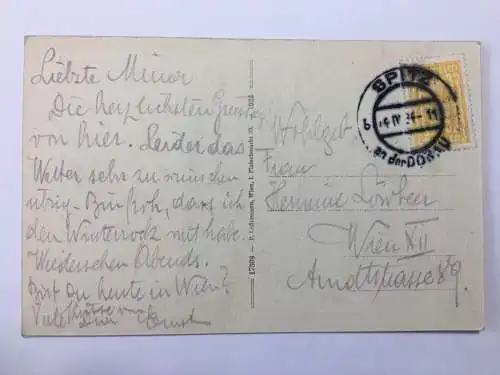 Liebste Minor
Die herzlichsten Grüsse
von hier. Leider das
Wetter sehr zu wünschen
übrig. Bin froh, dass ich
den Winterrock mit habe.
Wiedersehen Abends.
Bist du heute in Wien?
Viele Küsse von
Deinem Ernst
17308 P. Ledermann, Wien, I. Fleischmarkt 1932
SPITZ
6 14 IV 34 - 11
an der DONAU
Wohlgeb.
Frau
Hermine Löwbeer
Wien XII
Arndtstrasse 89